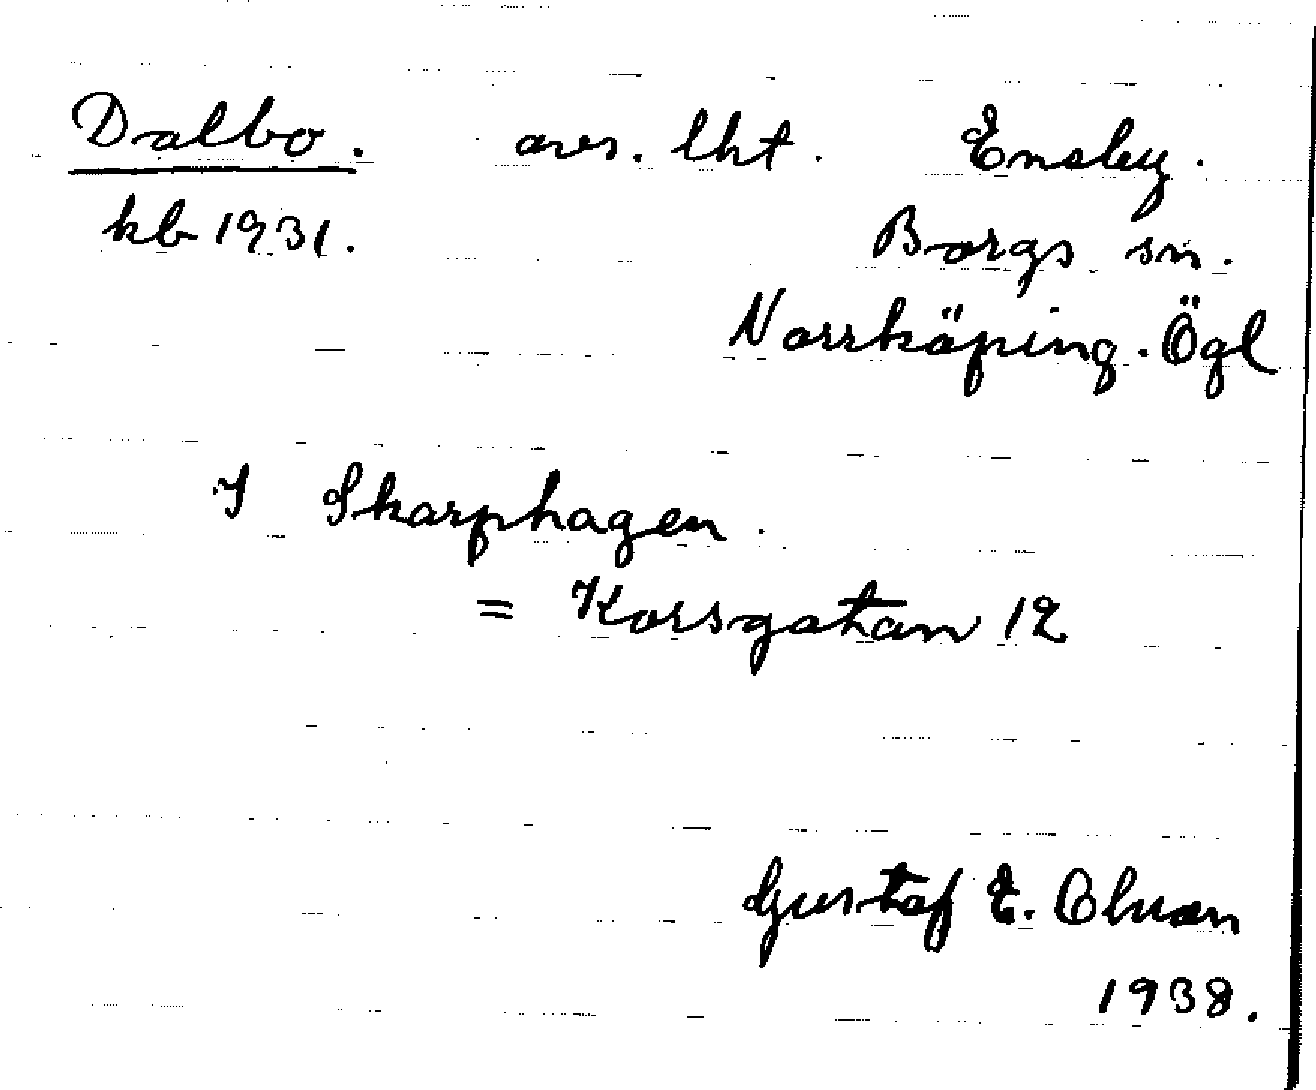 Dalbo. avs. lht. Ensby.
kb 1931. Borgs sn.
Norrköping. Ögl
I Skarphagen.
= Korsgatan 12
Gustaf E. Olsson
1938.